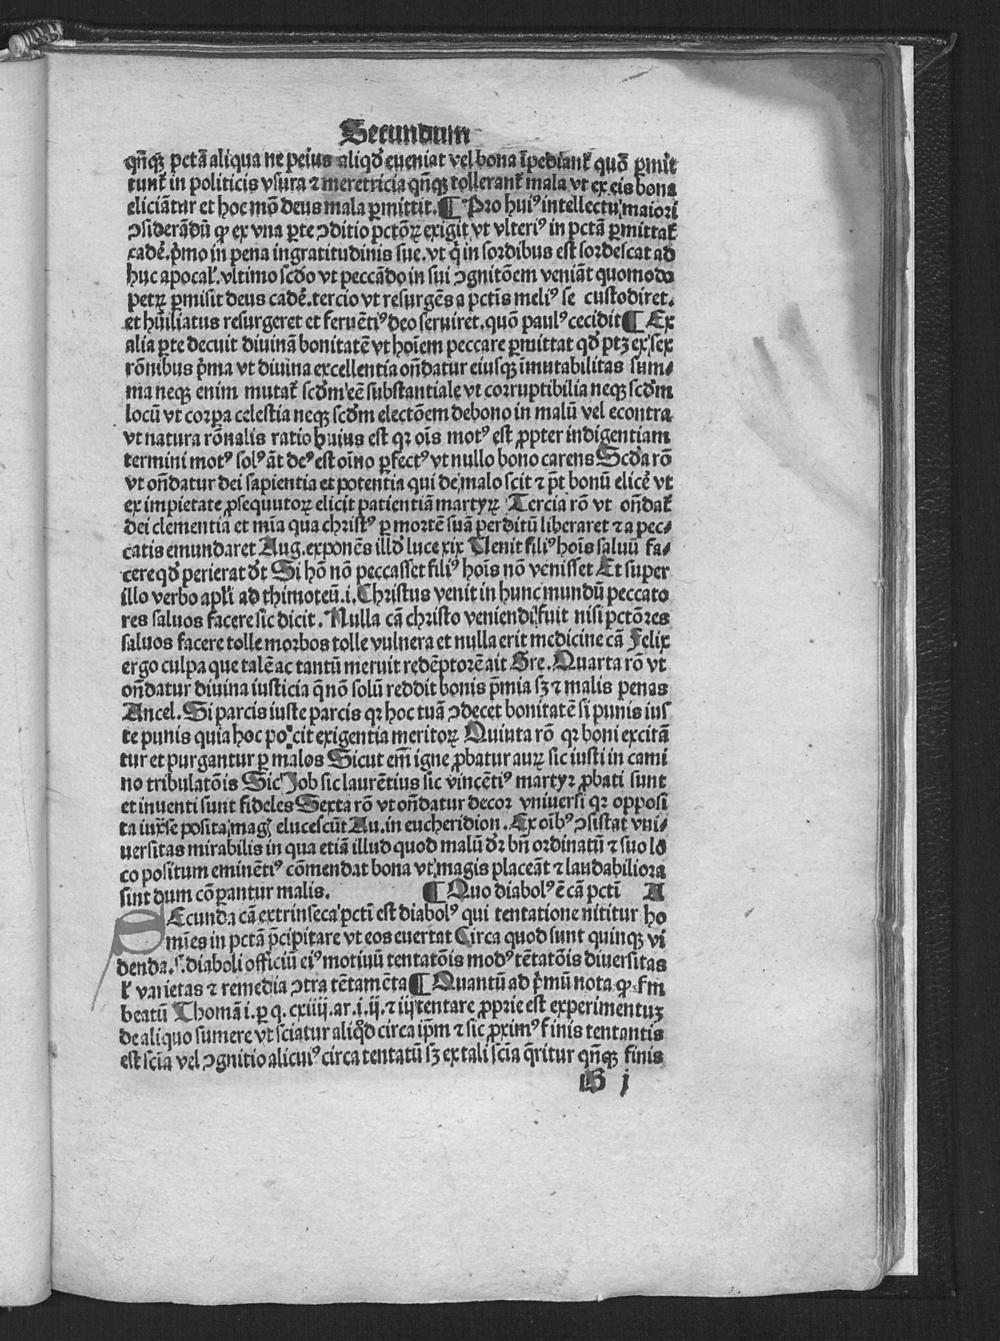 Secundum
qñqꝫ pctā aliqua ne peius aliqḋ eueniat vel bona īpediant᷑ quō ꝑmit
tunt᷑ in politicis vsura ⁊ meretricia qñqꝫ tollerant᷑ mala vt ex eis bona
eliciātur et hoc mō deus mala ꝑmittit. ¶ Pro huiꝰ intellectu maiori
ↄsiderādū ꝙ ex vna ꝑte ↄditio pctōꝝ exigit vt vlteriꝰ in pctā ꝑmittat᷑
cadē. pͥmo in pena ingratitudinis sue. vt qͥ in sordibus est sordescat ad
huc apocal᷑. vltimo scḋo vt peccādo in sui ↄgnitōem veniāt quomodo
petrꝰ ꝑmisit deus cadē. tercio vt resurgēs a pctīs meliꝰ se custodiret.
et hūiliatus resurgeret et feruētiꝰ deo seruiret. quō paulꝰ cecidit ¶ Ex
alia ꝑte decuit diuinā bonitatē vt hoīem peccare ꝑmittat qḋ ptꝫ ex sex
rōnibus pͥma vt diuina excellentia oñdatur eiusqꝫ īmutabilitas sum⸗
ma neqꝫ enim mutat᷑ scḋm eē substantiale vt corruptibilia neqꝫ scḋm
locū vt corꝑa celestia neqꝫ scḋm electōem de bono in malū vel econtra
vt natura rōnalis ratio huius est qꝛ oīs motꝰ est ꝓpter indigentiam
termini motꝰ solꝰ āt deꝰ est oīno ꝑfectꝰ vt nullo bono carens Scḋa rō
vt oñdatur dei sapientia et potentia qui de malo scit ⁊ pt bonū elicē vt
ex impietate ꝑsequutoꝝ elicit patientiā martyꝝ Tercia rō vt oñdat᷑
dei clementia et mīa qua christꝰ ꝑ mortē suā perditū liberaret ⁊ a pec⸗
catis emundaret Aug. exponēs illḋ luce xix Venit filiꝰ hoīs saluū fa⸗
cere qḋ perierat ḋt Si hō nō peccasset filiꝰ hoīs nō venisset Et super
illo verbo apl̄i ad thimoteū. i. Christus venit in hunc mundū peccato
res saluos facere sic dicit. Nulla cā christo veniendi fuit nisi pctōres
saluos facere tolle morbos tolle vulnera et nulla erit medicine cā Felix
ergo culpa que talē ac tantū meruit redēptorē ait Gre. Quarta rō vt
oñdatur diuina iusticia q̄ nō solū reddit bonis p̄mia sꝫ ⁊ malis penas
Ancel. Si parcis iuste parcis qꝛ hoc tuā ↄdecet bonitatē si punis ius
te punis quia hoc poscit exigentia meritoꝝ Quinta rō qꝛ boni excitā
tur et purgantur ꝑ malos Sicut em̄ igne ꝓbatur auꝝ sic iusti in cami
no tribulatōis Sic Job sic laurētius sic vincētiꝰ martyr ꝓbati sunt
et inuenti sunt fideles Sexta rō vt oñdatur decor vniuersi qꝛ opposi
ta iux̄ se posita mag᷑ elucescūt Au. in eucheridion. Ex oībꝰ ↄsistat vni⸗
uersitas mirabilis in qua etiā illud quod malū dꝛ bñ ordinatū ⁊ suo lo
co positum eminētiꝰ cōmendat bona vt magis placeāt ⁊ laudabiliora
sint dum cōꝑantur malis. ¶ Quo diabolꝰ ē cā pcti A
SEcunda cā extrinseca pcti est diabolꝰ qui tentatione nititur ho
mīes in pctā p̄cipitare vt eos euertat Circa quod sunt quinqꝫ vi
denda. s. diaboli officiū eiꝰ motiuū tentatōis modꝰ tētatōis diuersitas
l᷑ varietas ⁊ remedia ↄtra tētamēta ¶ Quantū ad pͥmū nota ꝙ fm
beatū Thomā i. ꝑ q. cxiiij. ar. i. ij. ⁊ iij tentare ꝓprie est experimentuꝫ
de aliquo sumere vt sciatur aliqḋ circa ip̄m ⁊ sic ꝓximꝰ finis tentantis
est scīa vel ↄgnitio alicuiꝰ circa tentatū sꝫ ex tali scīa q̄ritur qñqꝫ finis
B j